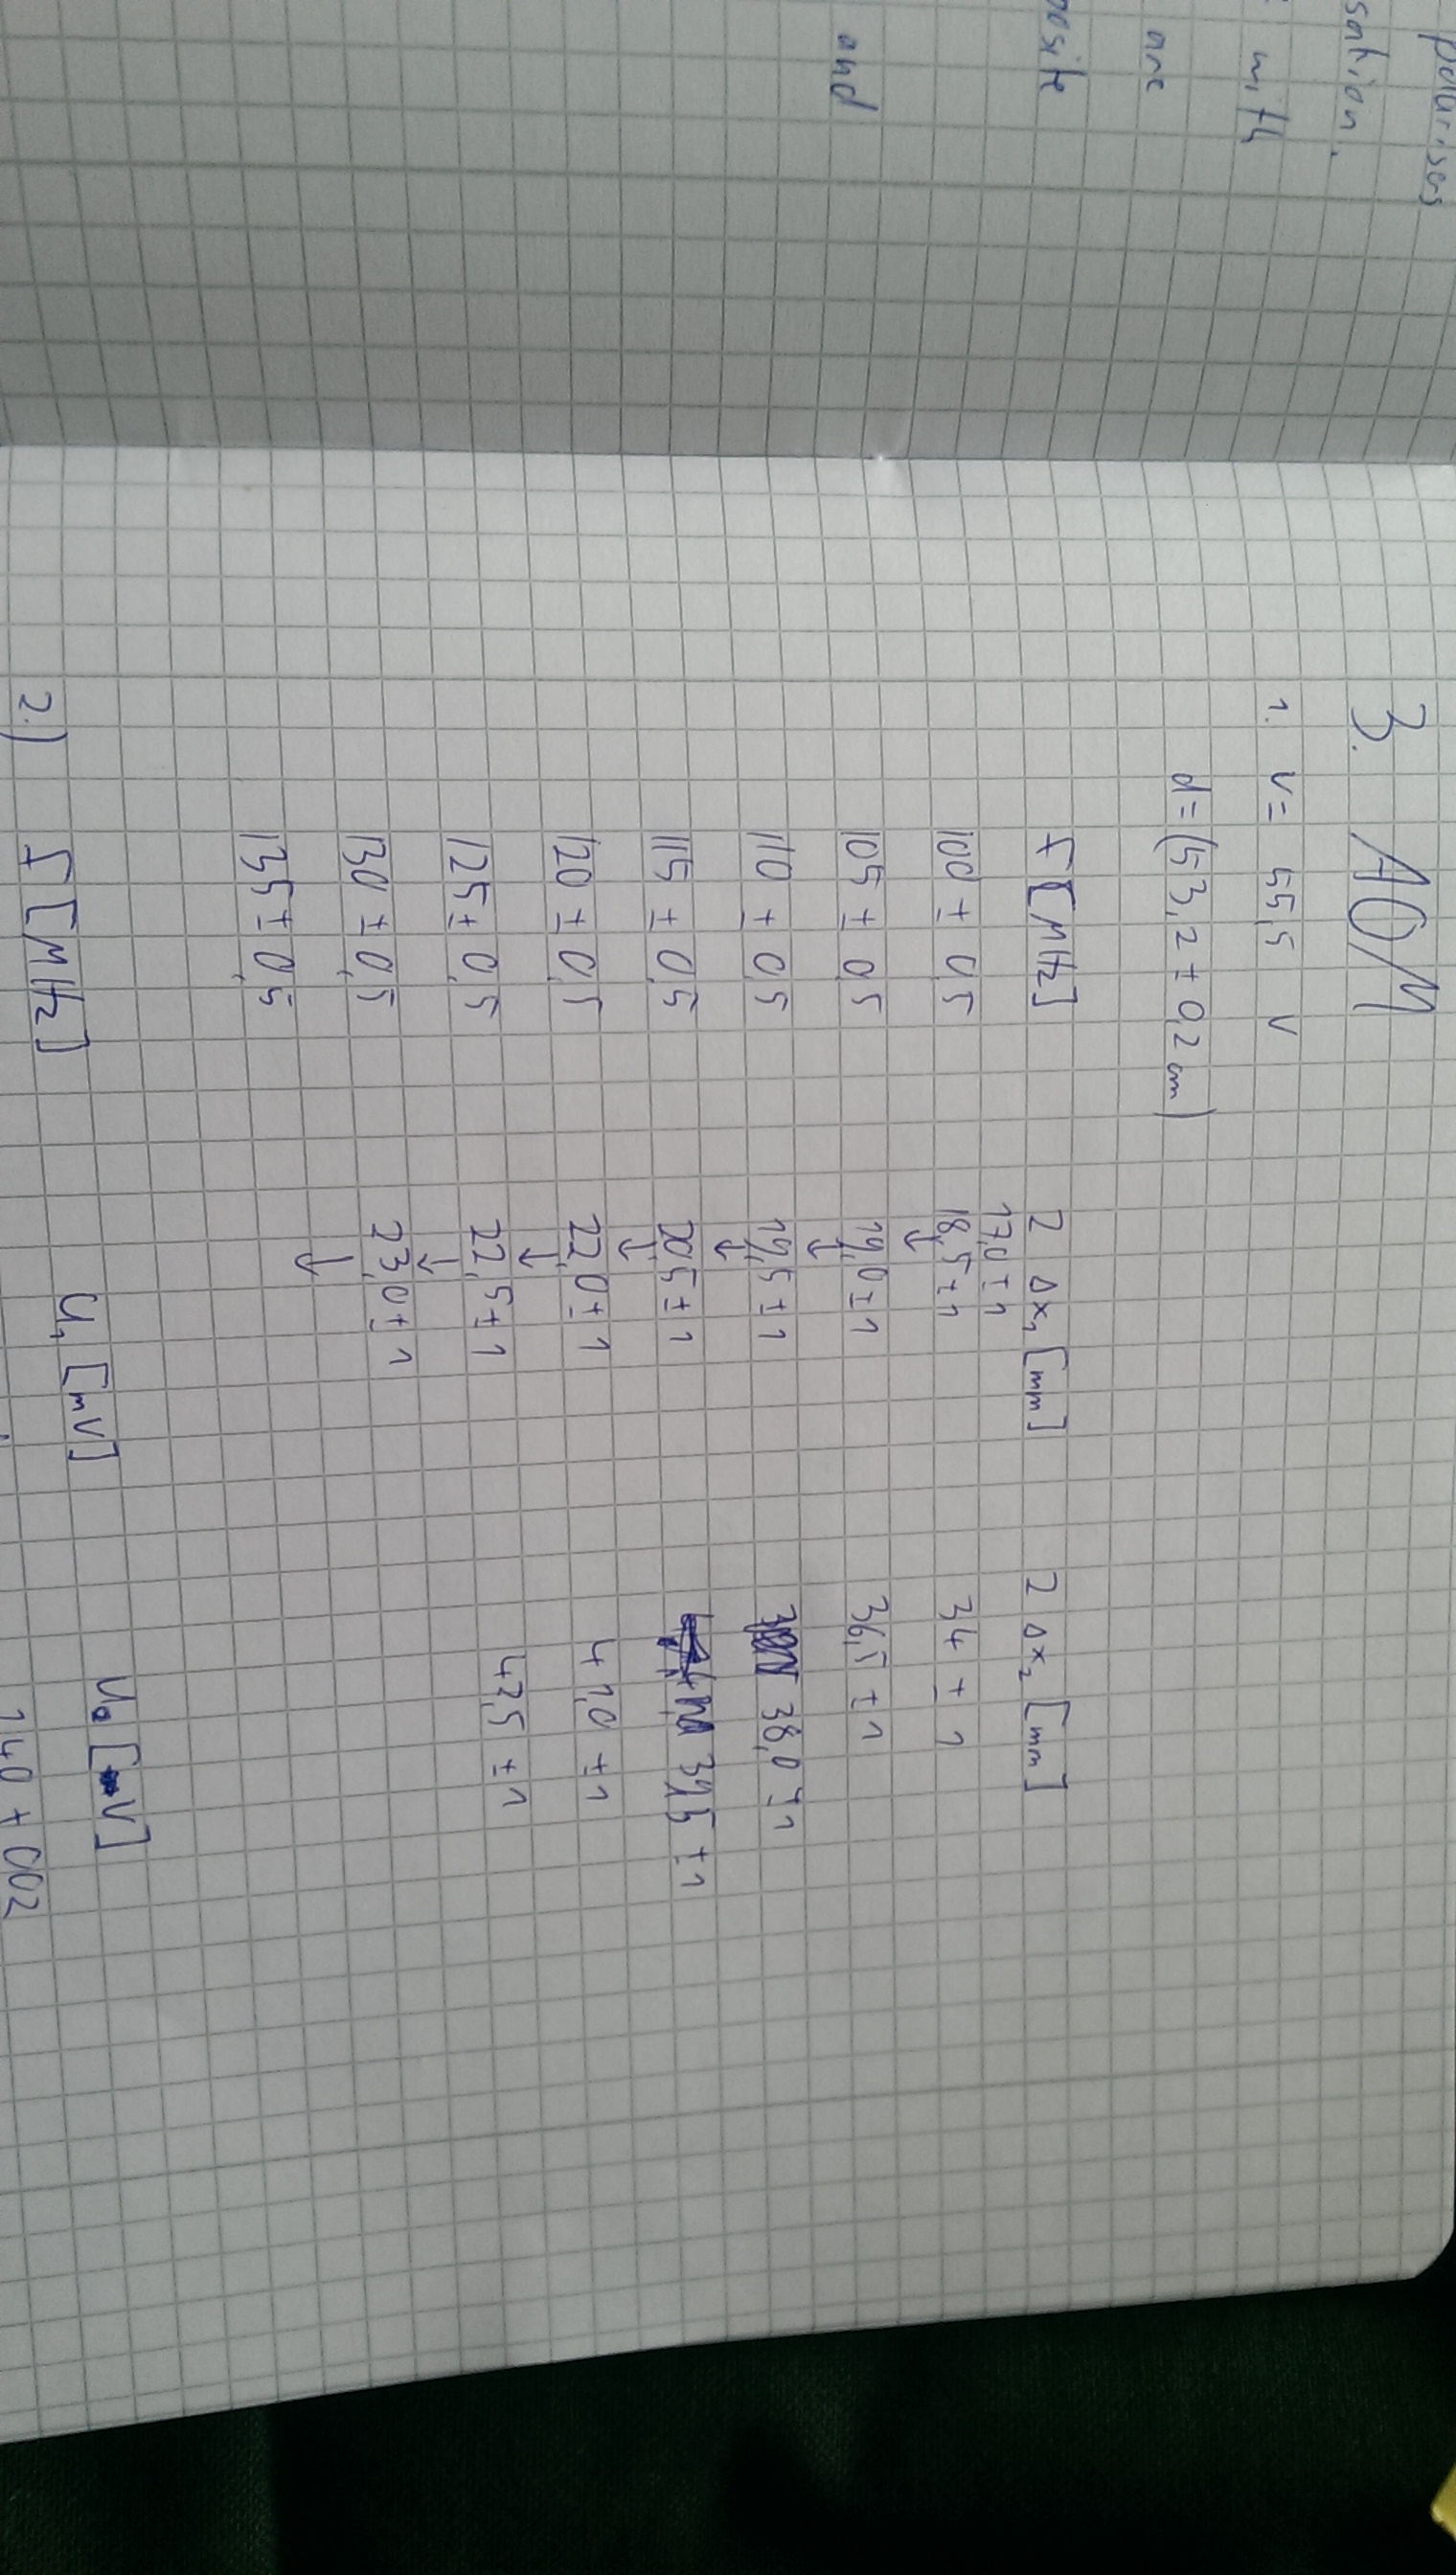 polarises
sation.
with
are
posite
and
3. AOM
1. V = 55,5 V
d = (53,2 ± 0,2 cm)
f [MHz] 2 Δx₁ [mm] 2 Δx₂ [mm]
17,0 ± 1
100 ± 0,5 18,5 ± 1 34 ± 1
105 ± 0,5 ↓ 19,0 ± 1 36,5 ± 1
110 ± 0,5 ↓ 19,5 ± 1 38,0 ± 1
115 ± 0,5 ↓ 20,5 ± 1 39,5 ± 1
120 ± 0,5 ↓ 22,0 ± 1 41,0 ± 1
125 ± 0,5 ↓ 22,5 ± 1 42,5 ± 1
130 ± 0,5 ↓ 23,0 ± 1
135 ± 0,5 ↓
2.) f [MHz] U₁ [mV] U₀ [V]
1,40 ± 0,02